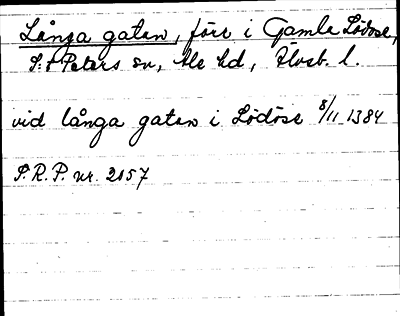 Långa gatan, förr i Gamla Lödöse,
S:t Peters sn, Ale hd, Älvsb. l.
vid långa gatan i Lödöse 8/11 1384
S.R.P. nr. 2057